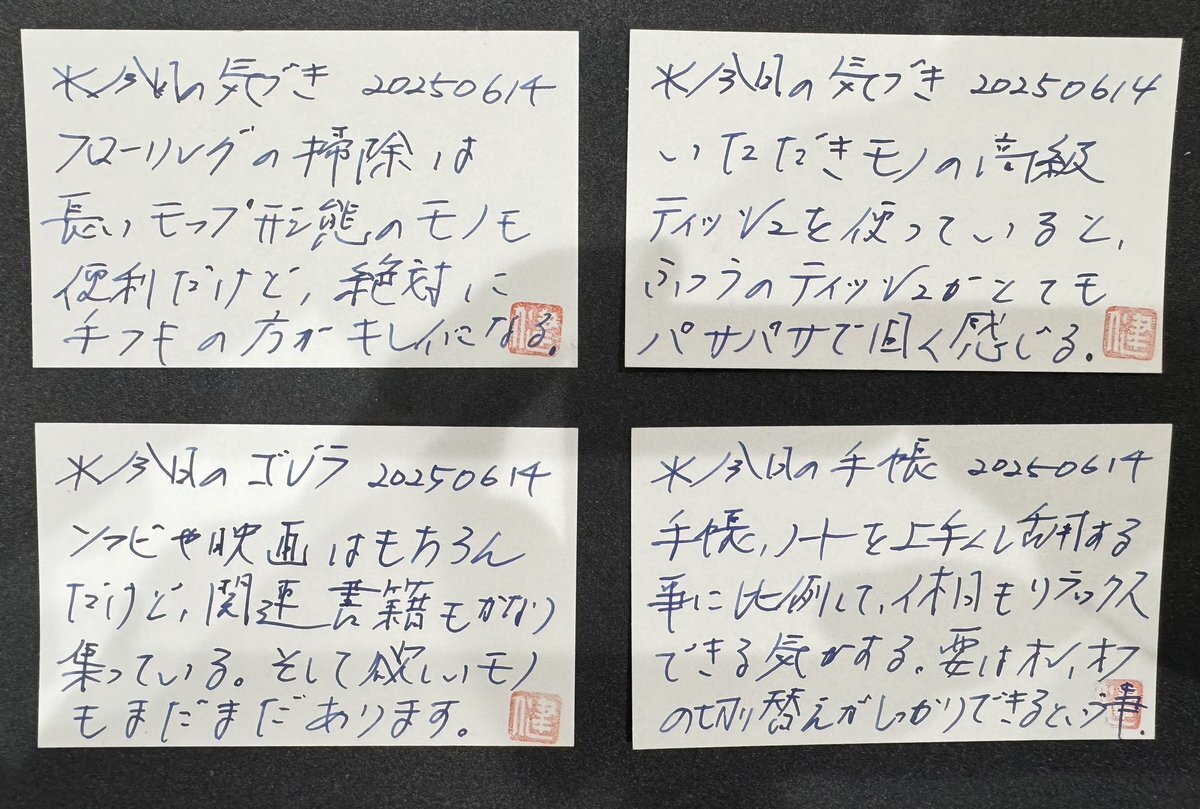 ※今日の気づき 20250614
フローリングの掃除は
長いモップ形態のモノも
便利だけど、絶対に
手フキの方がキレイになる。
健
※今日の気づき 20250614
いただきモノの高級
ティッシュを使っていると、
ふつうのティッシュがとても
パサパサで固く感じる。
健
※今日のゴジラ 20250614
ソフビや映画はもちろん
だけど、関連書籍もかなり
集っている。そして欲しいモノ
もまだまだあります。
健
※今日の手帳 20250614
手帳、ノートを上手く活用する
事に比例して、休日もリラックス
できる気がする。要はオン、オフ
の切り替えがしっかりできるという事.